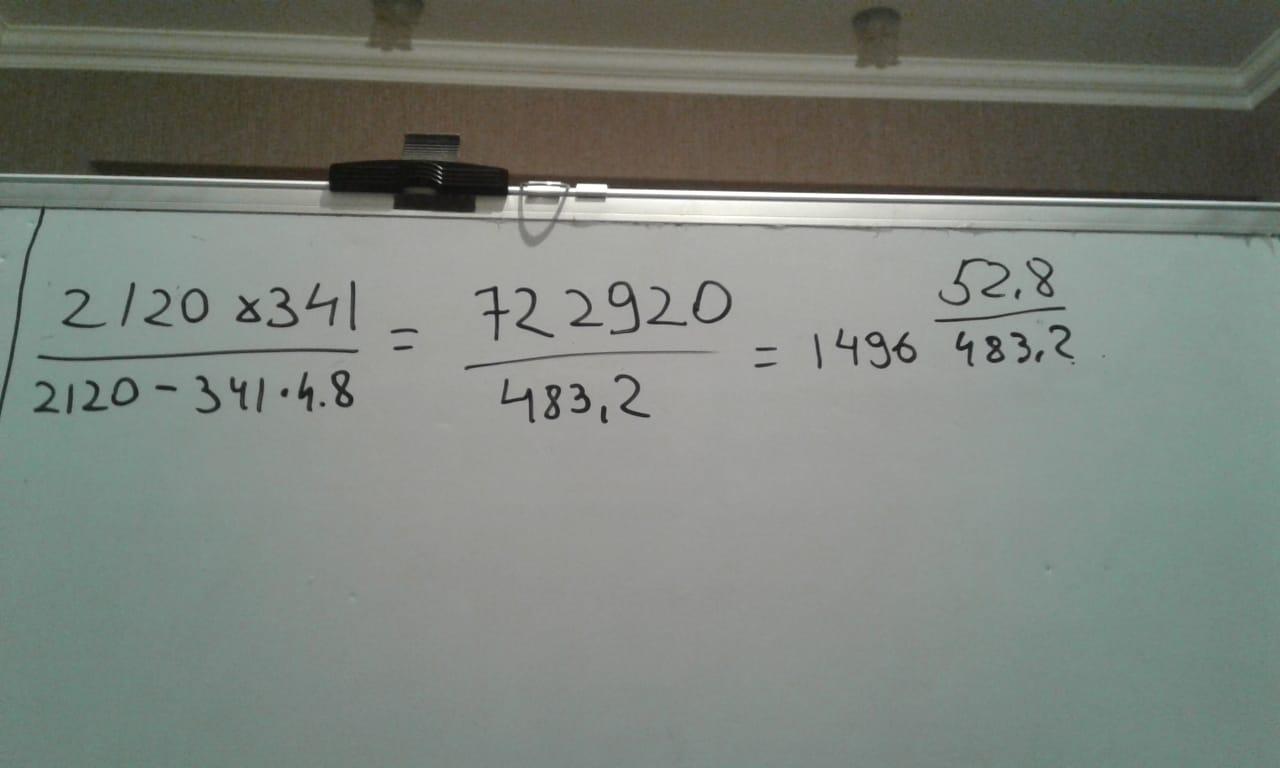 2120 x 341 / 2120 - 341 · 4.8 = 722920 / 483,2 = 1496 52,8 / 483,2